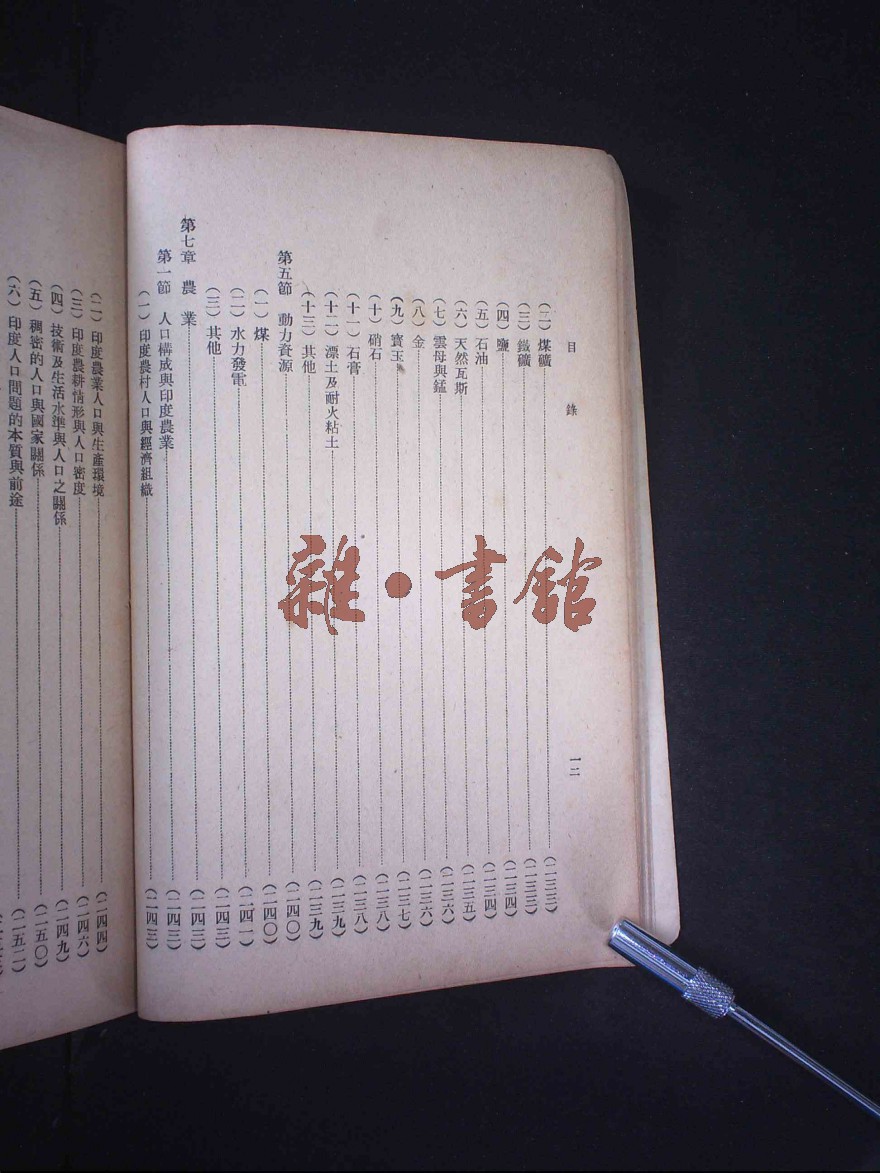 目錄
一二
(二) 煤礦 (二三三)
(三) 鐵礦 (二三三)
(四) 鹽 (二三四)
(五) 石油 (二三四)
(六) 天然瓦斯 (二三五)
(七) 雲母與錳 (二三六)
(八) 金 (二三六)
(九) 寶玉 (二三七)
(十) 硝石 (二三八)
(十一) 石膏 (二三八)
(十二) 漂土及耐火粘土 (二三九)
(十三) 其他 (二三九)
第五節 動力資源 (二四〇)
(一) 煤 (二四〇)
(二) 水力發電 (二四一)
(三) 其他 (二四三)
第七章 農業 (二四三)
第一節 人口構成與印度農業 (二四三)
(一) 印度農村人口與經濟組織 (二四三)
(二) 印度農業人口與生產環境 (二四四)
(三) 印度農耕情形與人口密度 (二四六)
(四) 技術及生活水準與人口之關係 (二四九)
(五) 稠密的人口與國家關係 (二五〇)
(六) 印度人口問題的本質與前途 (二五二)
雜·書館